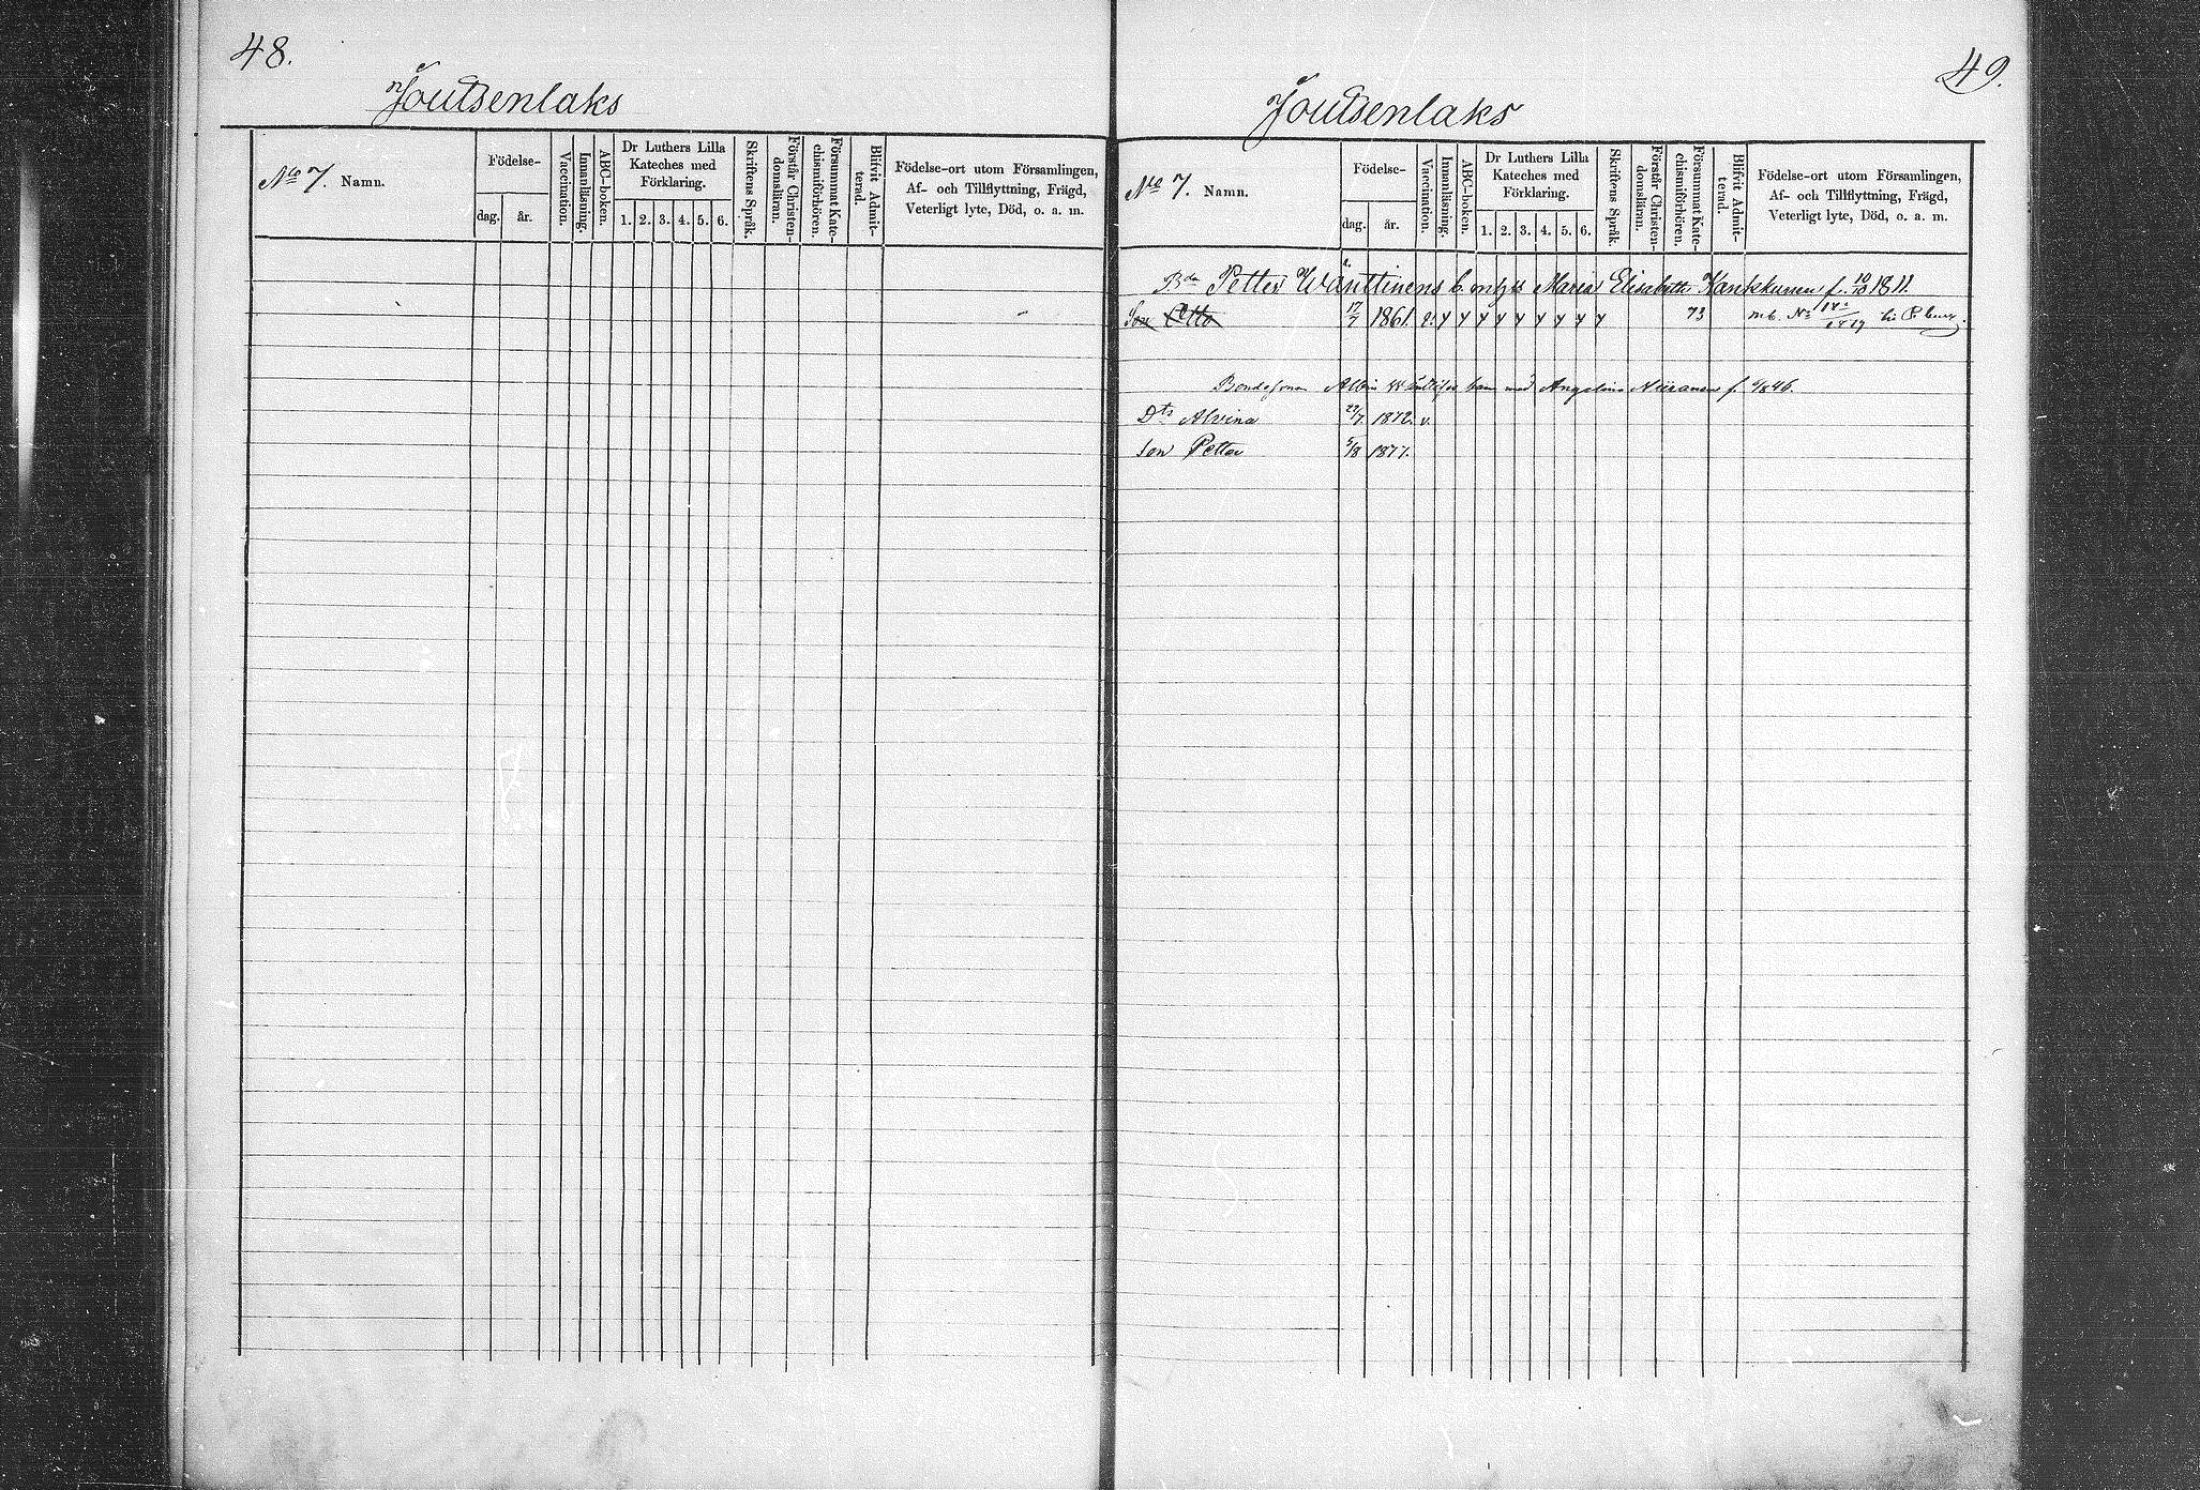 48.
Joutsenlaks
No 7. Namn.
Födelse-
dag. år.
Vaccination.
Innanläsning.
ABC-boken.
Dr Luthers Lilla
Kateches med
Förklaring.
1. 2. 3. 4. 5. 6.
Skriftens Språk.
Förstår Christen-
domsläran.
Försummat Kate-
chismiförhören.
Blifvit Admit-
terad.
Födelse-ort utom Församlingen,
Af- och Tillflyttning, Frägd,
Veterligt lyte, Död, o. a. m.
49.
Joutsenlaks
No 7. Namn.
Födelse-
dag. år.
Vaccination.
Innanläsning.
ABC-boken.
Dr Luthers Lilla
Kateches med
Förklaring.
1. 2. 3. 4. 5. 6.
Skriftens Språk.
Förstår Christen-
domsläran.
Försummat Kate-
chismiförhören.
Blifvit Admit-
terad.
Födelse-ort utom Församlingen,
Af- och Tillflyttning, Frägd,
Veterligt lyte, Död, o. a. m.
Petter Wänttinens b. m. Maria Elisabeth f. 10/10 1811
Son Otto 17/7 1861. v. 73 m. b. No
Bondesonen Albin barn med Angelina Niiranen f. 4/8 46.
Dtr Alvina 22/7 1872. v.
Son Petter 5/8 1877.